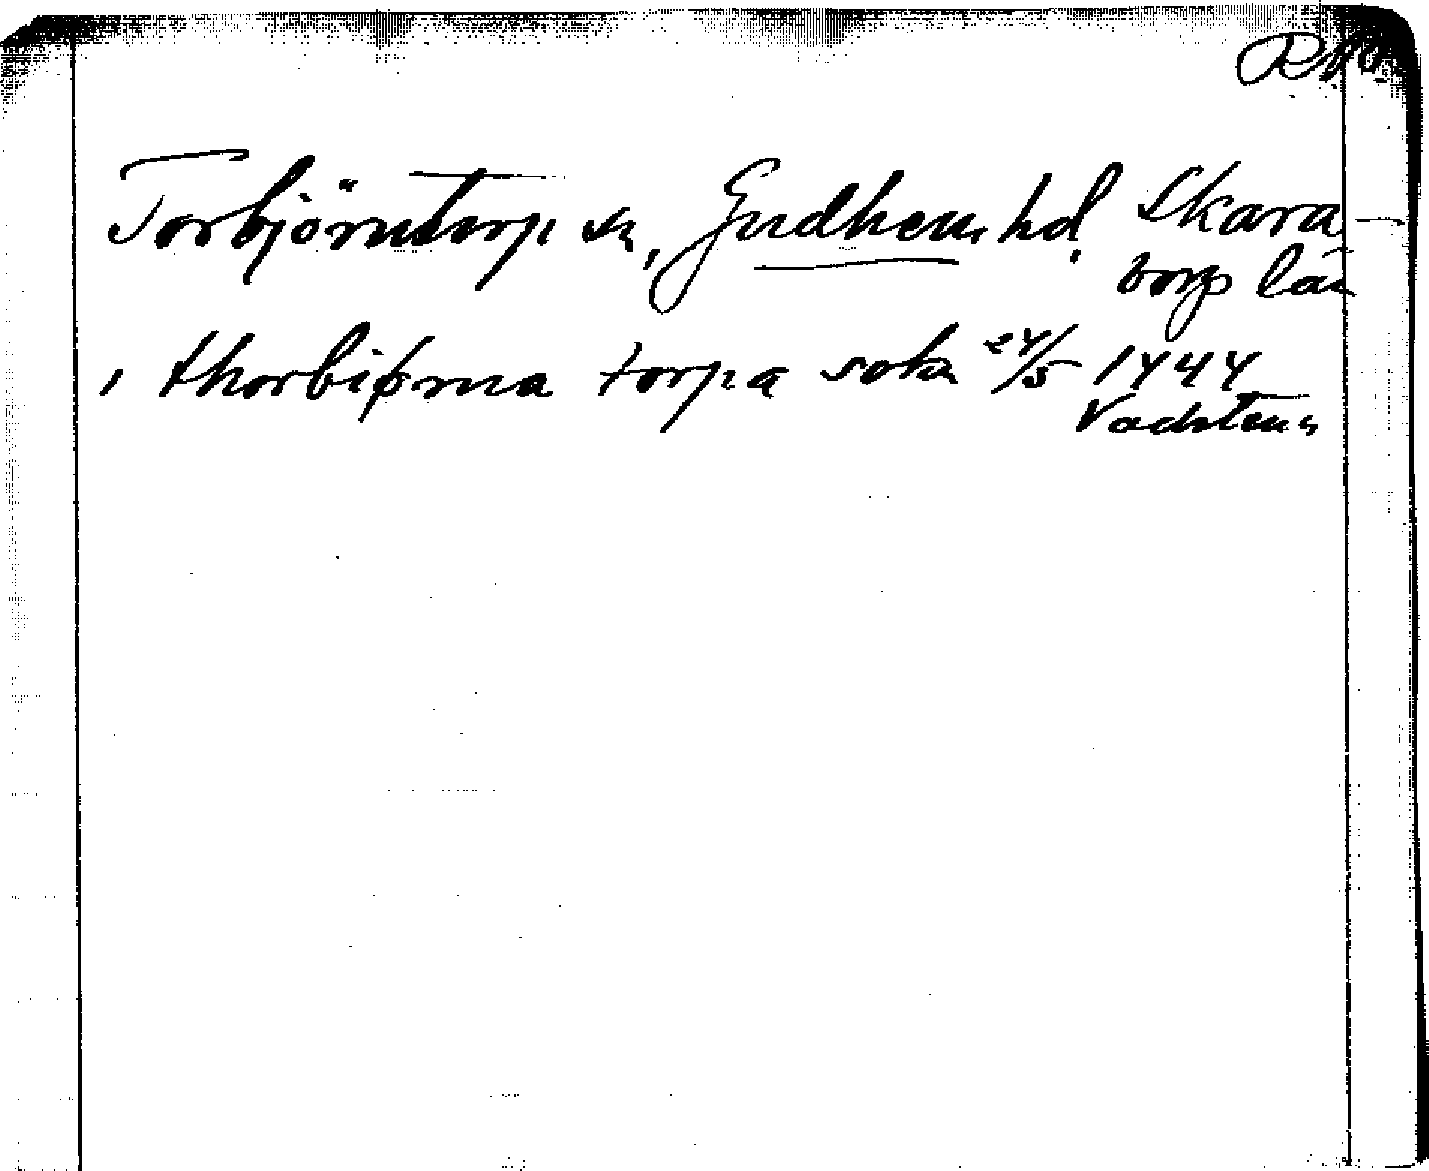 Torbjörntorp sn, Gudhem hd, Skara-
borgs län
i thorbiørna torpa sokn 24/5 1444
Vadstena